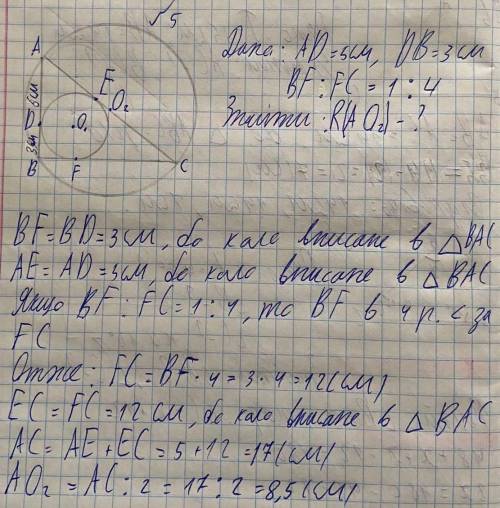 √5
Дано: AD=5см, DB=3см
BF:FC=1:4
Знайти: R(AO₂)-?
A
E
O₂
5см
D
O₁
3см
B
F
C
BF=BD=3см, бо коло вписане в △BAC
AE=AD=5см, бо коло вписане в △BAC
Якщо BF:FC=1:4, то BF в 4 р. < за
FC
Отже: FC=BF·4=3·4=12(см)
EC=FC=12см, бо коло вписане в △BAC
AC=AE+EC=5+12=17(см)
AO₂=AC:2=17:2=8,5(см)